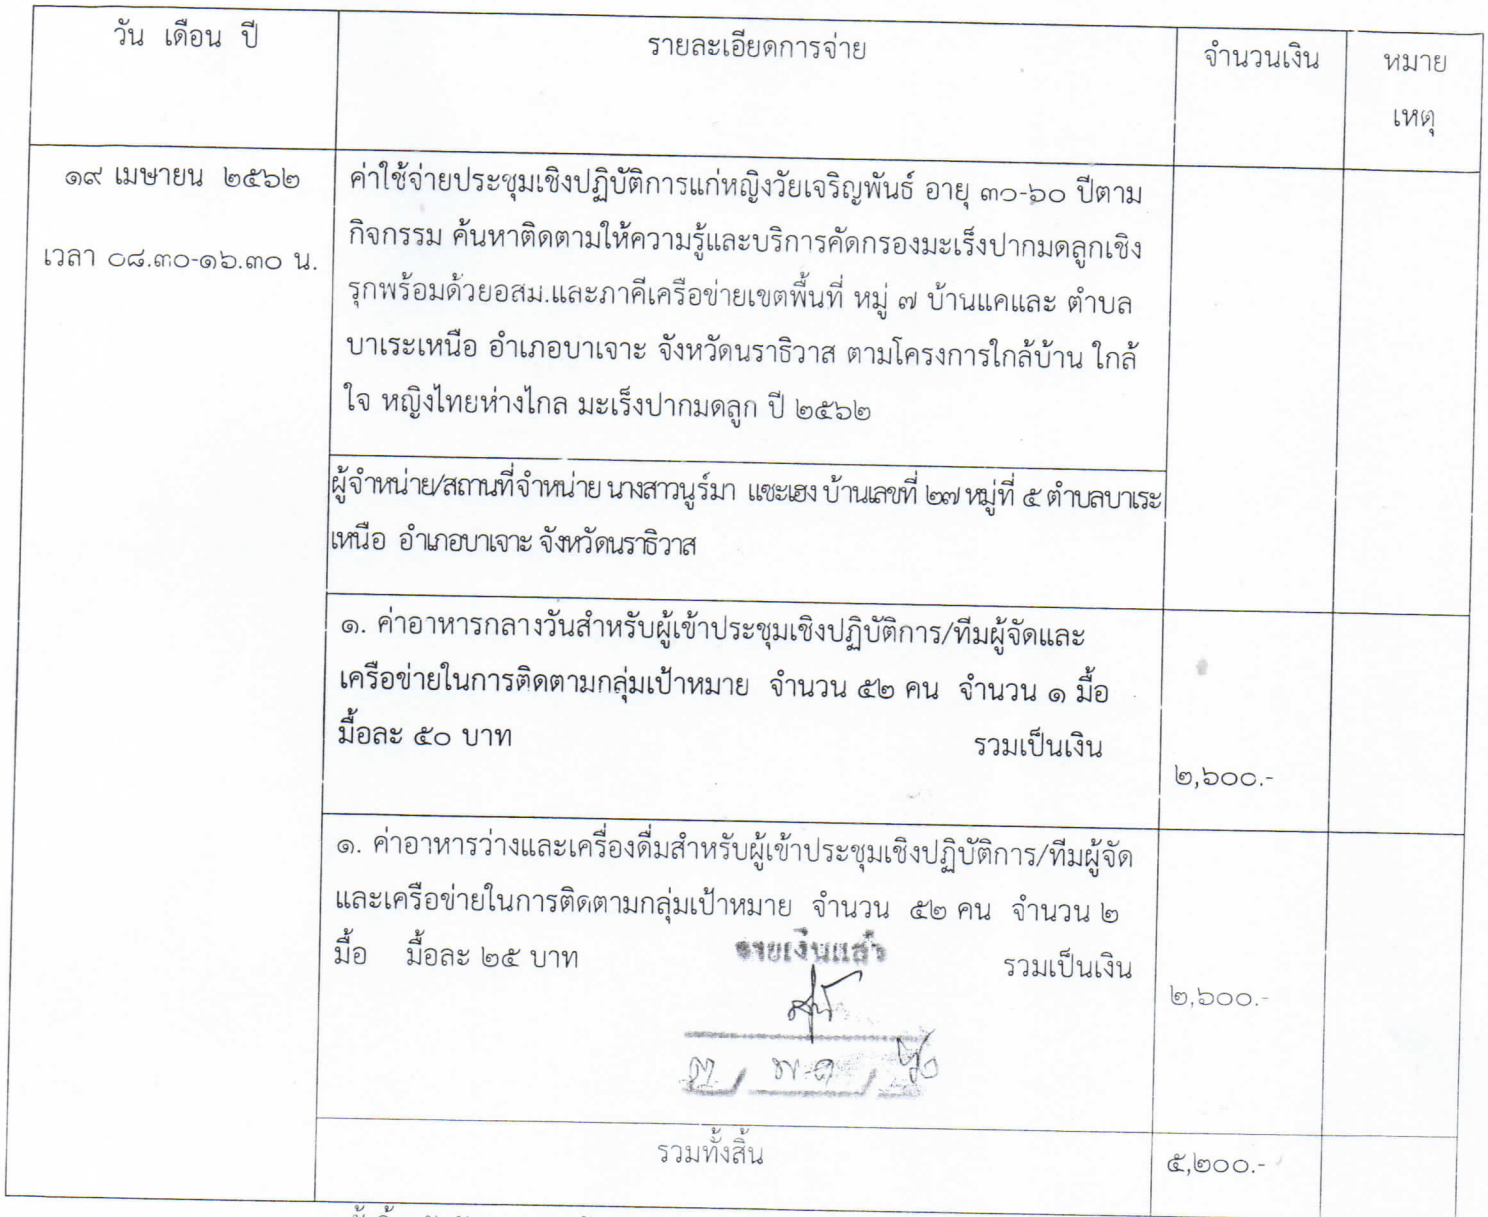 วัน เดือน ปี
รายละเอียดการจ่าย
จำนวนเงิน
หมาย
เหตุ
๑๙ เมษายน ๒๕๖๒
เวลา ๐๘.๓๐-๑๖.๓๐ น.
ค่าใช้จ่ายประชุมเชิงปฏิบัติการแก่หญิงวัยเจริญพันธ์ อายุ ๓๐-๖๐ ปีตาม
กิจกรรม ค้นหาติดตามให้ความรู้และบริการคัดกรองมะเร็งปากมดลูกเชิง
รุกพร้อมด้วยอสม.และภาคีเครือข่ายเขตพื้นที่ หมู่ ๗ บ้านแคและ ตำบล
บาเระเหนือ อำเภอบาเจาะ จังหวัดนราธิวาส ตามโครงการใกล้บ้าน ใกล้
ใจ หญิงไทยห่างไกล มะเร็งปากมดลูก ปี ๒๕๖๒
ผู้จำหน่าย/สถานที่จำหน่าย นางสาวนูร์มา แซะเฮง บ้านเลขที่ ๒๗ หมู่ที่ ๕ ตำบลบาเระ
เหนือ อำเภอบาเจาะ จังหวัดนราธิวาส
๑. ค่าอาหารกลางวันสำหรับผู้เข้าประชุมเชิงปฏิบัติการ/ทีมผู้จัดและ
เครือข่ายในการติดตามกลุ่มเป้าหมาย จำนวน ๕๒ คน จำนวน ๑ มื้อ
มื้อละ ๕๐ บาท รวมเป็นเงิน
๒,๖๐๐.-
๑. ค่าอาหารว่างและเครื่องดื่มสำหรับผู้เข้าประชุมเชิงปฏิบัติการ/ทีมผู้จัด
และเครือข่ายในการติดตามกลุ่มเป้าหมาย จำนวน ๕๒ คน จำนวน ๒
มื้อ มื้อละ ๒๕ บาท รวมเป็นเงิน
จ่ายเงินแล้ว
๒,๖๐๐.-
รวมทั้งสิ้น
๕,๒๐๐.-